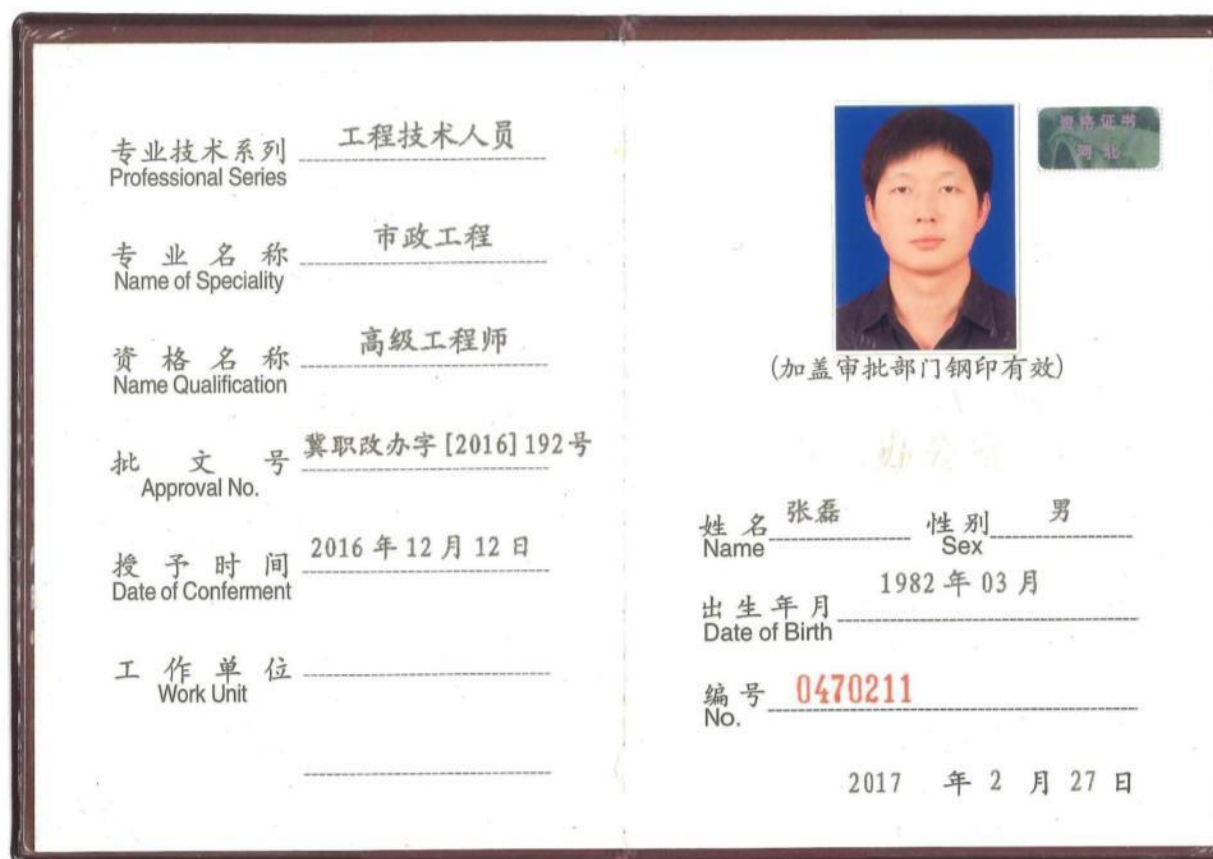 专业技术系列 工程技术人员
Professional Series
专业名称 市政工程
Name of Speciality
资格名称 高级工程师
Name Qualification
批文号 冀职改办字[2016]192号
Approval No.
授予时间 2016年12月12日
Date of Conferment
工作单位
Work Unit
资格证书
河北
(加盖审批部门钢印有效)
办公室
姓名 张磊 性别 男
Name Sex
出生年月 1982年03月
Date of Birth
编号 0470211
No.
2017 年 2 月 27 日